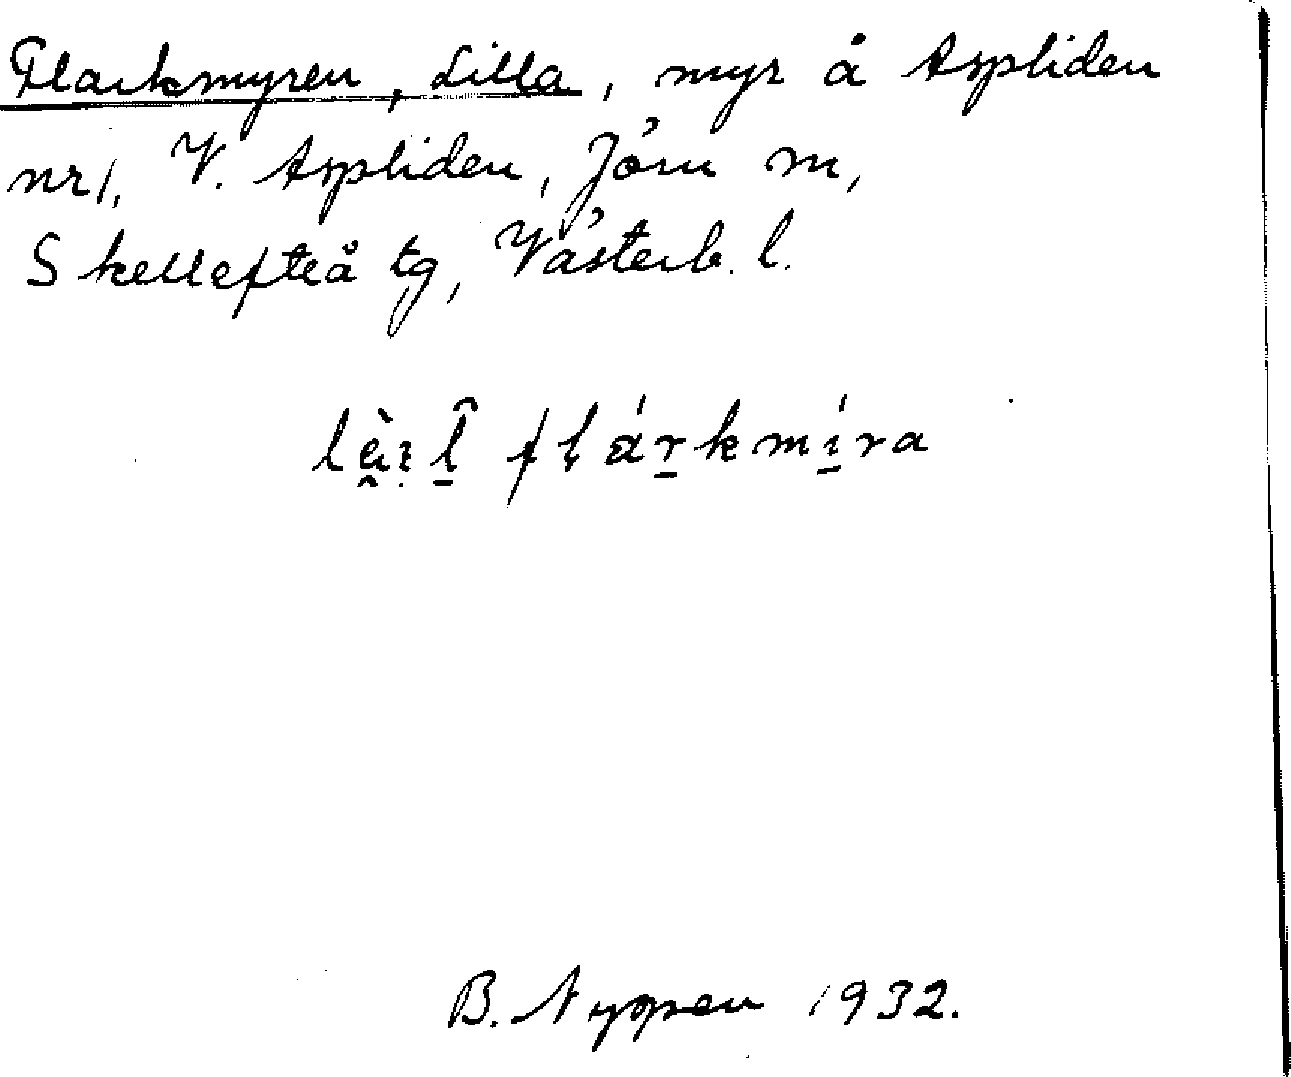 Flarkmyren, Lilla, myr å Aspliden
nr 1, V. Aspliden, Jörn m,
Skellefteå tg, Västerb. l.
flárkmíra
B. Nyppen 1932.